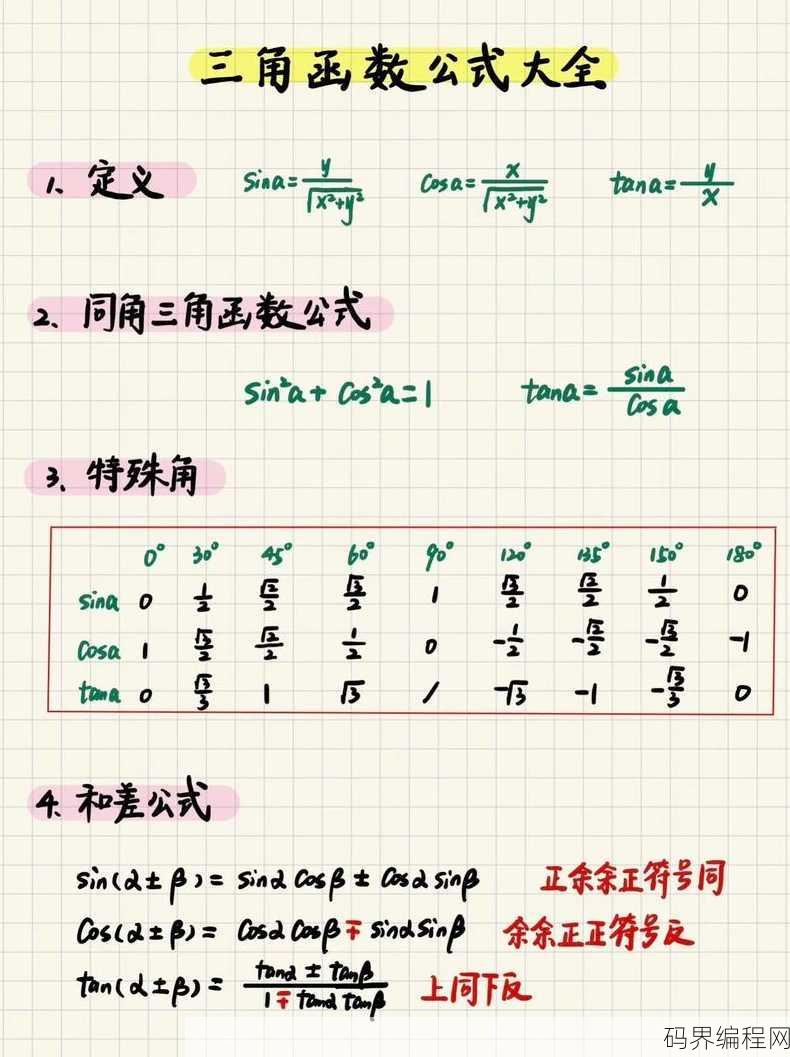 三角函数公式大全
1、定义 sina=y/√(x²+y²) cosa=x/√(x²+y²) tana=y/x
2、同角三角函数公式
sin²a+cos²a=1 tana=sina/cosa
3、特殊角
0° 30° 45° 60° 90° 120° 135° 150° 180°
sina 0 1/2 √2/2 √3/2 1 √3/2 √2/2 1/2 0
cosa 1 √3/2 √2/2 1/2 0 -1/2 -√2/2 -√3/2 -1
tana 0 √3/3 1 √3 / -√3 -1 -√3/3 0
4、和差公式
sin(α±β)=sinαcosβ±cosαsinβ 正余余正符号同
cos(α±β)=cosαcosβ∓sinαsinβ 余余正正符号反
tan(α±β)=(tanα±tanβ)/(1∓tanαtanβ) 上同下反
码界编程网